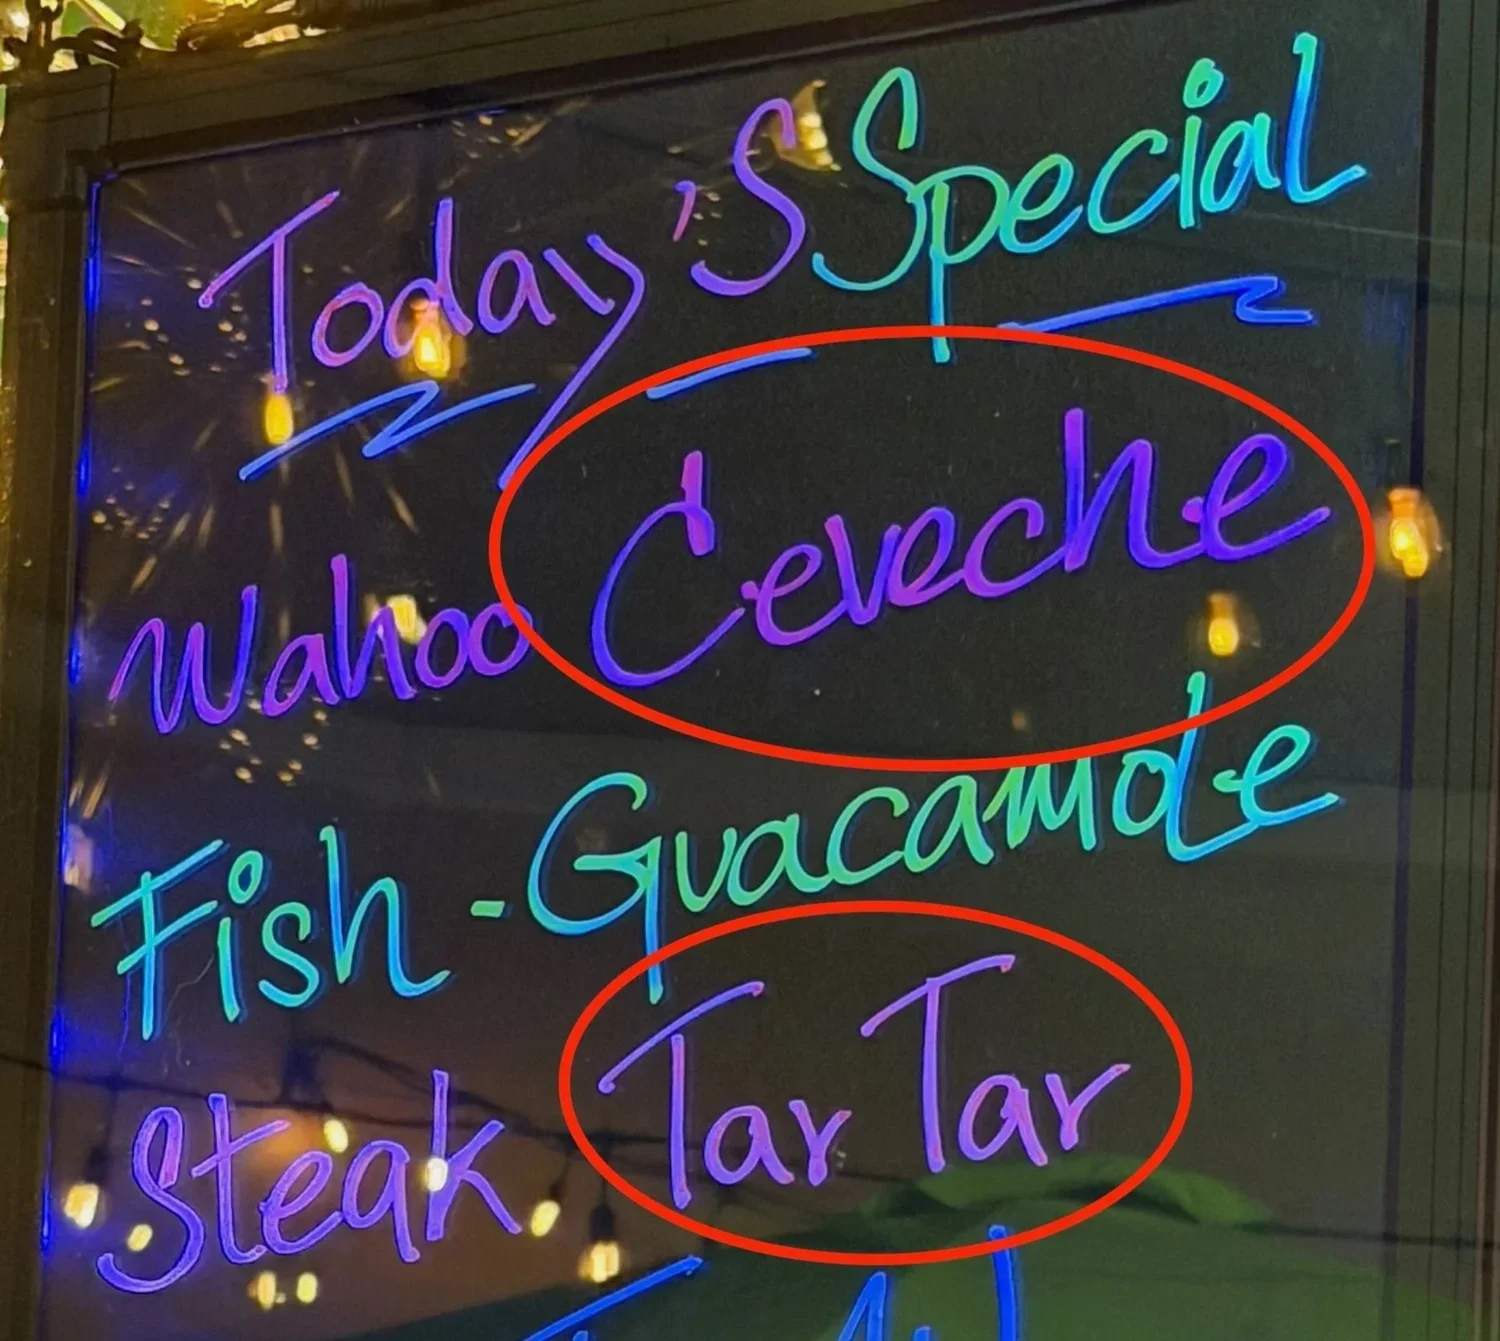 Today's Special
Wahoo Ceveche
Fish - Guacamole
Steak Tar Tar